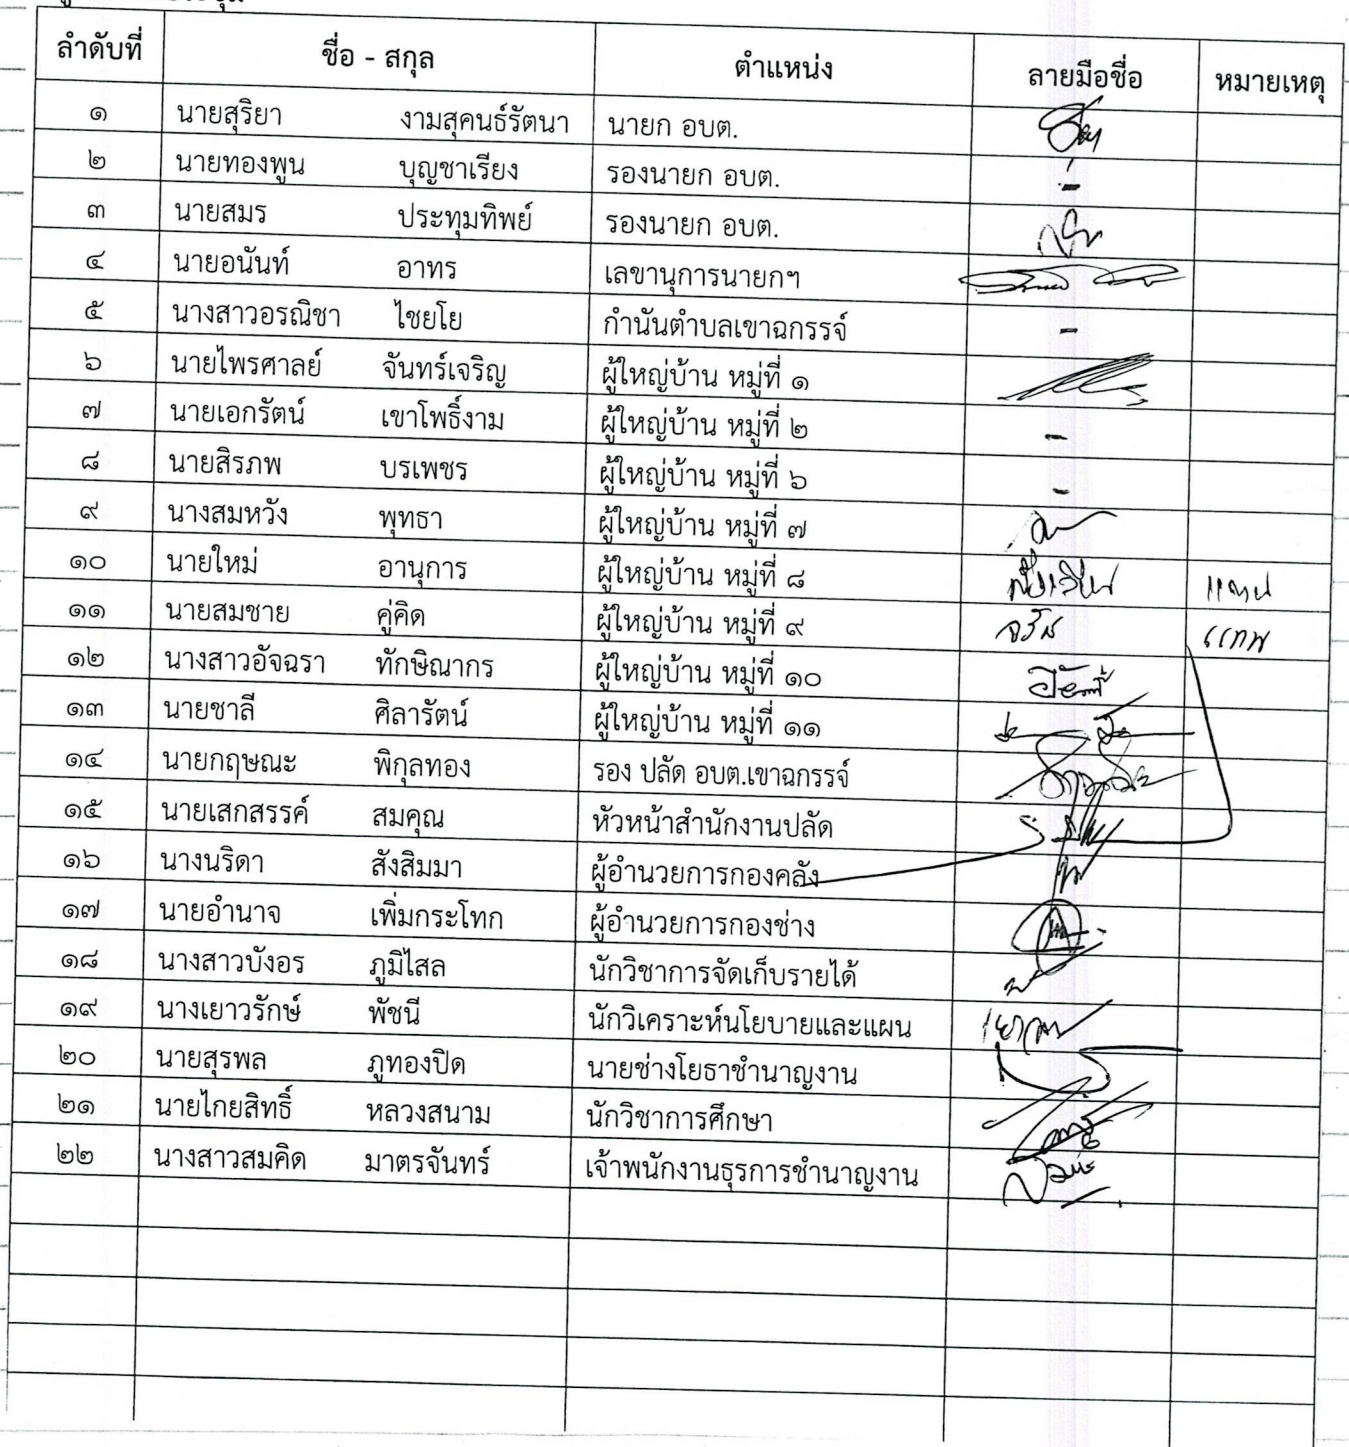 ลำดับที่ ชื่อ - สกุล ตำแหน่ง ลายมือชื่อ หมายเหตุ
๑ นายสุริยา งามสุคนธ์รัตนา นายก อบต.
๒ นายทองพูน บุญชาเรียง รองนายก อบต. -
๓ นายสมร ประทุมทิพย์ รองนายก อบต.
๔ นายอนันท์ อาทร เลขานุการนายกฯ
๕ นางสาวอรณิชา ไชยโย กำนันตำบลเขาฉกรรจ์ -
๖ นายไพรศาลย์ จันทร์เจริญ ผู้ใหญ่บ้าน หมู่ที่ ๑
๗ นายเอกรัตน์ เขาโพธิ์งาม ผู้ใหญ่บ้าน หมู่ที่ ๒ -
๘ นายสิรภพ บรเพชร ผู้ใหญ่บ้าน หมู่ที่ ๖ -
๙ นางสมหวัง พุทธา ผู้ใหญ่บ้าน หมู่ที่ ๗
๑๐ นายใหม่ อานุการ ผู้ใหญ่บ้าน หมู่ที่ ๘ แทน
๑๑ นายสมชาย คู่คิด ผู้ใหญ่บ้าน หมู่ที่ ๙ แทน
๑๒ นางสาวอัจฉรา ทักษิณากร ผู้ใหญ่บ้าน หมู่ที่ ๑๐
๑๓ นายชาลี ศิลารัตน์ ผู้ใหญ่บ้าน หมู่ที่ ๑๑
๑๔ นายกฤษณะ พิกุลทอง รอง ปลัด อบต.เขาฉกรรจ์
๑๕ นายเสกสรรค์ สมคุณ หัวหน้าสำนักงานปลัด
๑๖ นางนริดา สังสิมมา ผู้อำนวยการกองคลัง
๑๗ นายอำนาจ เพิ่มกระโทก ผู้อำนวยการกองช่าง
๑๘ นางสาวบังอร ภูมิไสล นักวิชาการจัดเก็บรายได้
๑๙ นางเยาวรักษ์ พัชนี นักวิเคราะห์นโยบายและแผน
๒๐ นายสุรพล ภูทองปิด นายช่างโยธาชำนาญงาน
๒๑ นายไกยสิทธิ์ หลวงสนาม นักวิชาการศึกษา
๒๒ นางสาวสมคิด มาตรจันทร์ เจ้าพนักงานธุรการชำนาญงาน